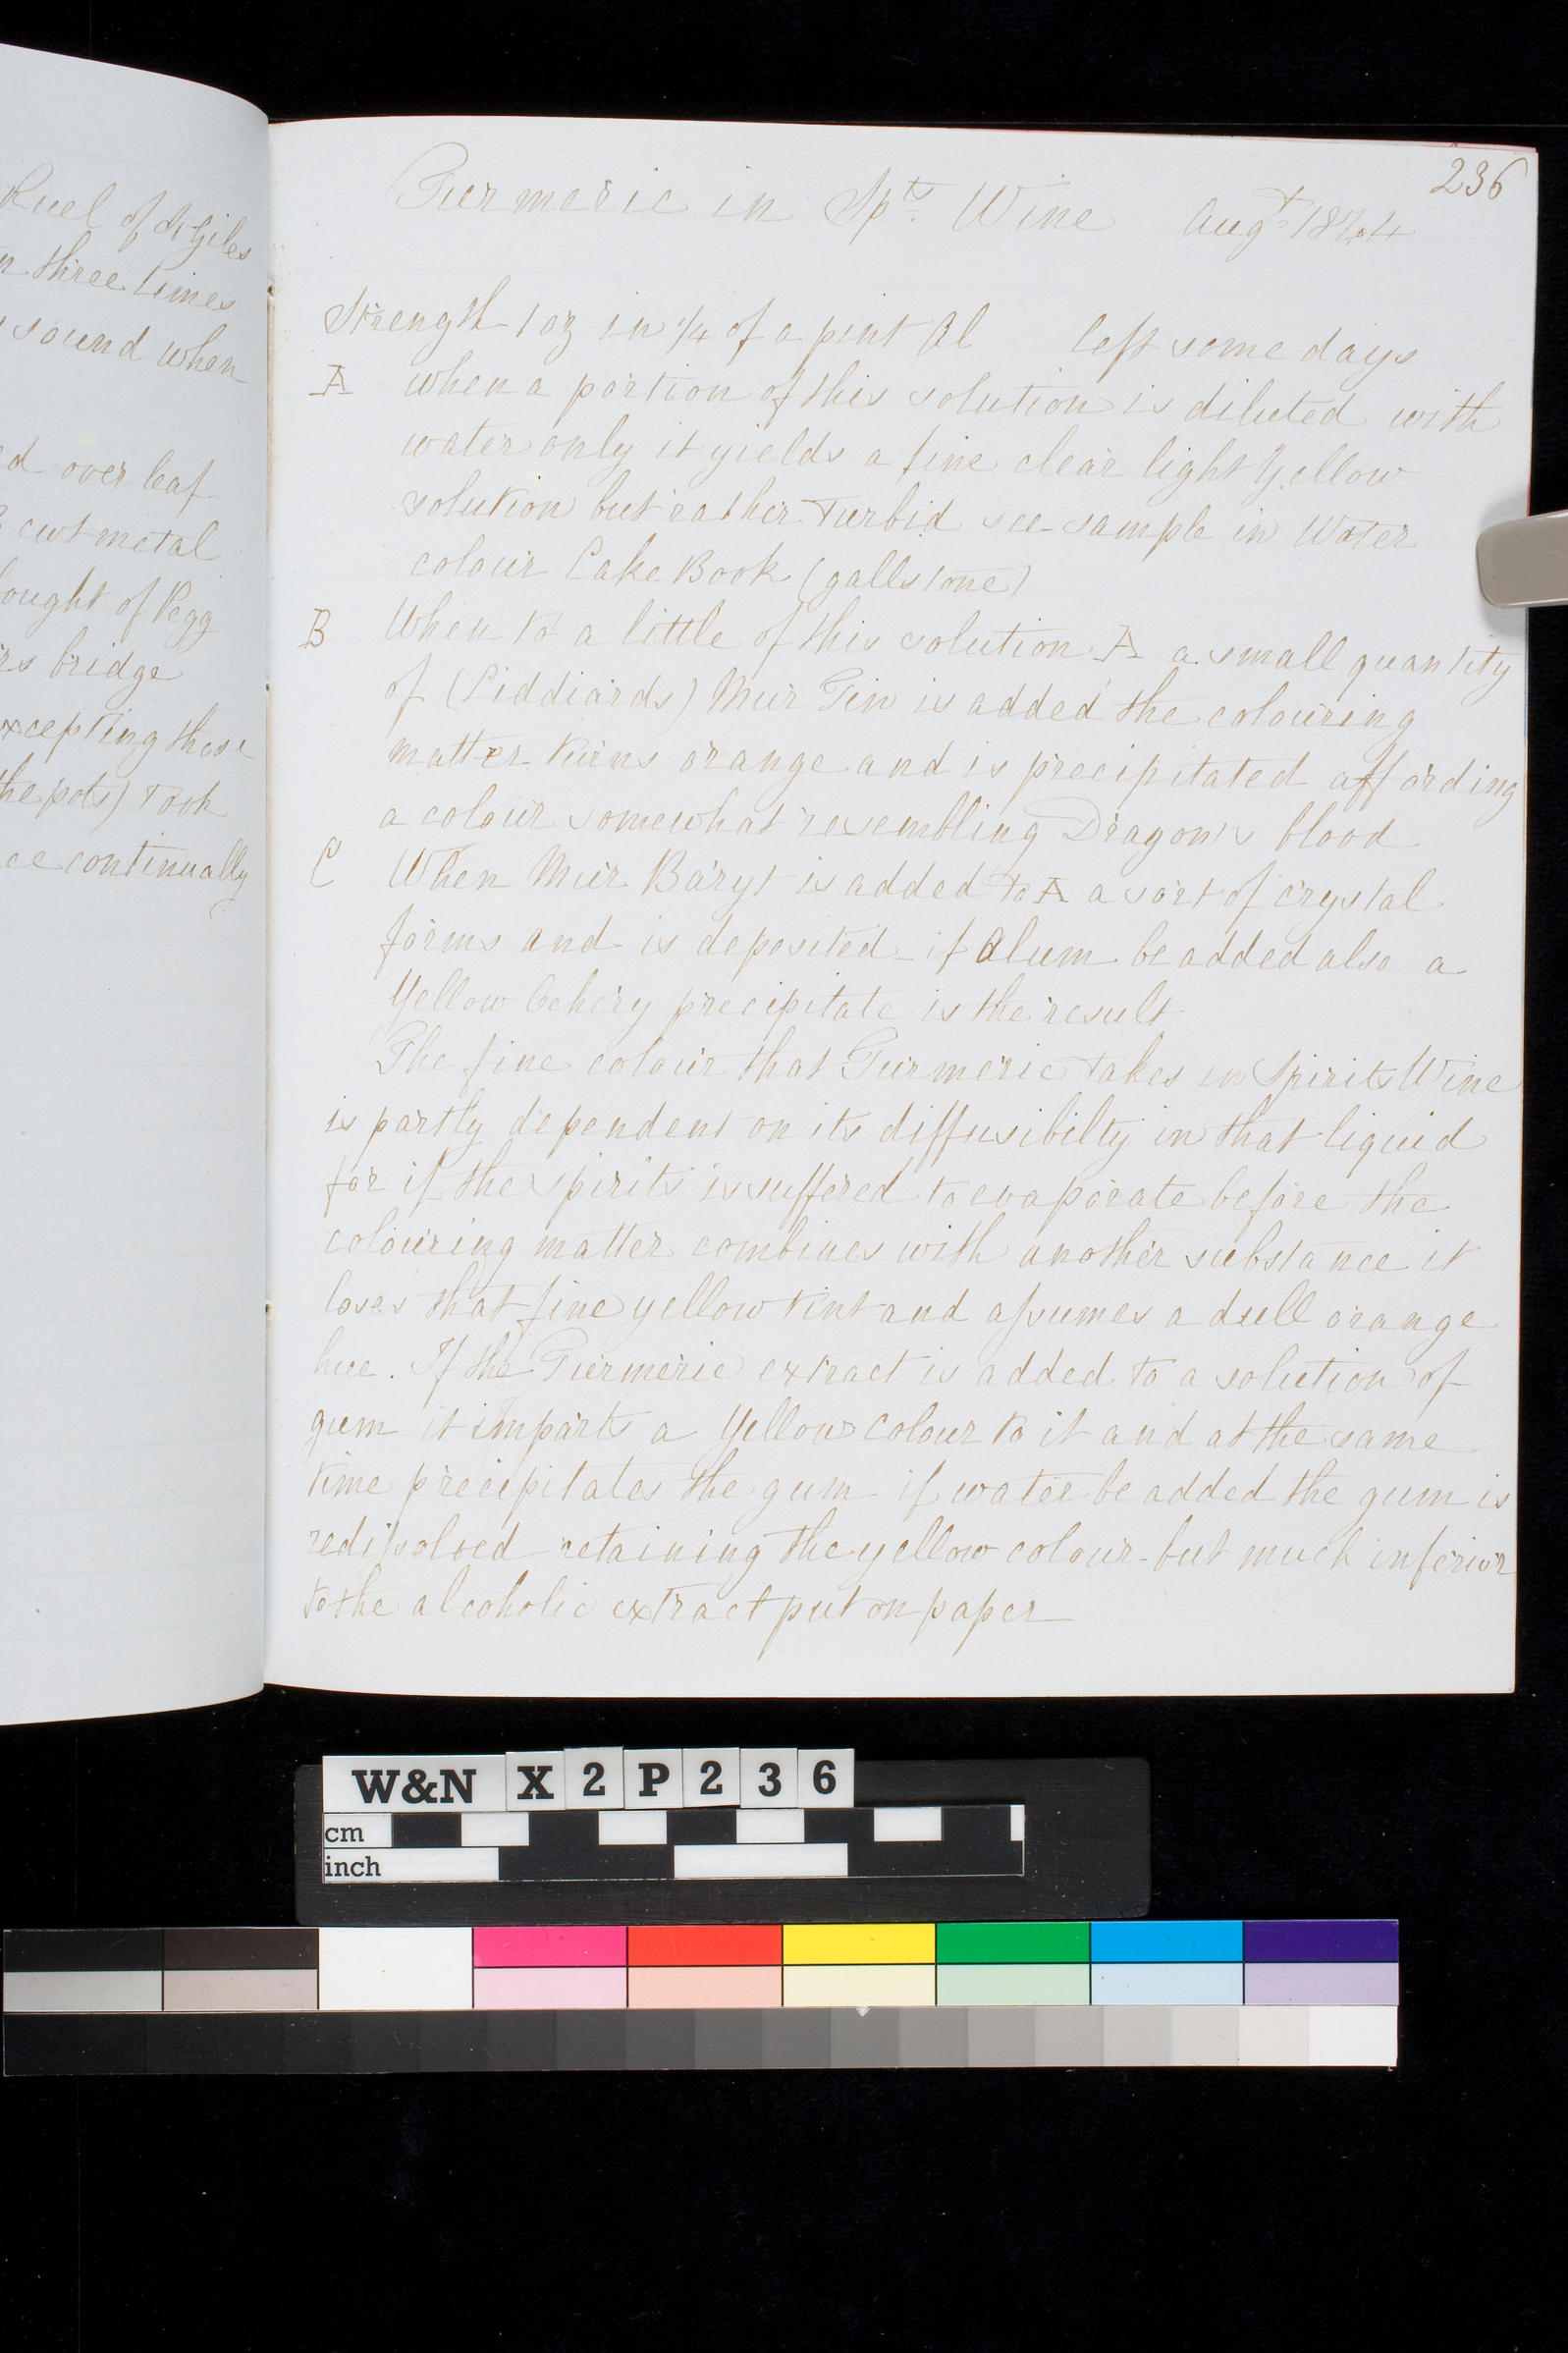 Ruel of St Giles
three times
sound when
over leaf
cwt metal
ought of Pegg
rs bridge
xcepting those
the pots) took
ce continually
236
Turmeric in Spts Wine Augt 1844
Strength 1 oz in 1/4 of a pint Al left some days
A when a portion of this solution is diluted with
water only it yields a fine clear light Yellow
solution but rather Turbid see sample in Water
colour Cake Book (gallstone)
B When to a little of this solution A a small quantity
of (Liddiards) Mur Tin is added the colouring
matter turns orange and is precipitated affording
a colour somewhat resembling Dragon's blood
C When Mur Baryt is added to A a sort of crystal
forms and is deposited - if Alum be added also a
Yellow Ochery precipitate is the result
The fine colour that Turmeric takes in Spirits Wine
is partly dependent on its diffusibilty in that liquid
for if the spirits is suffered to evaporate before the
colouring matter combines with another substance it
loses that fine yellow tint and assumes a dull orange
hue. If the Turmeric extract is added to a solution of
gum it imparts a Yellow colour to it and at the same
time precipitates the gum if water be added the gum is
redissolved retaining the yellow colour - but much inferior
to the alcoholic extract put on paper
W&N X2P236
cm
inch